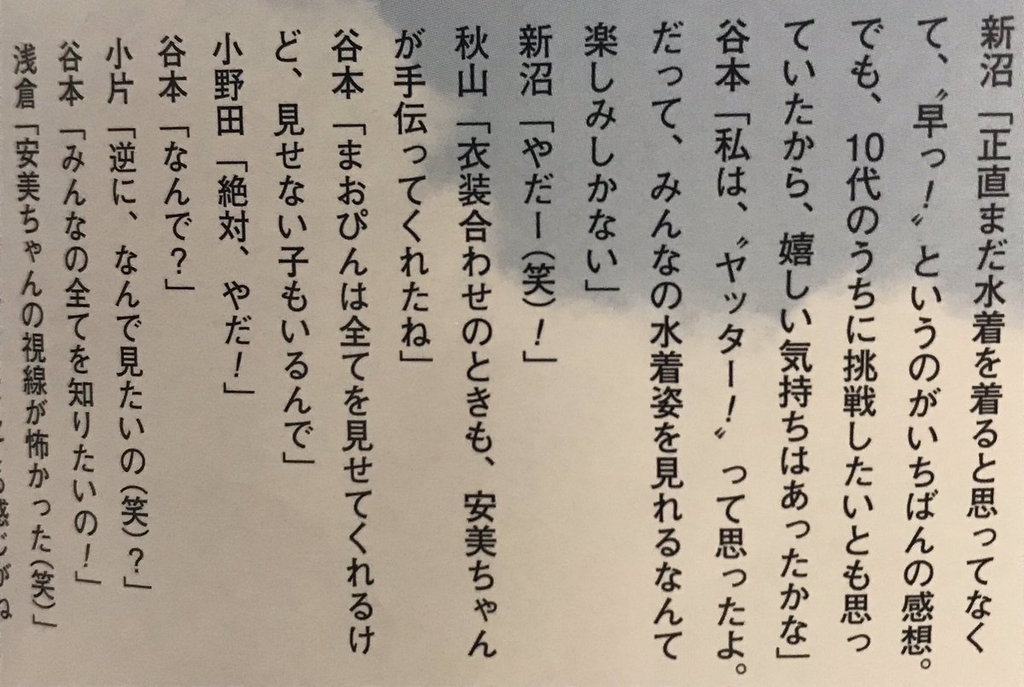 新沼「正直まだ水着を着ると思ってなく
て、〝早っ！〟というのがいちばんの感想。
でも、10代のうちに挑戦したいとも思っ
ていたから、嬉しい気持ちはあったかな」
谷本「私は、〝ヤッター！〟って思ったよ。
だって、みんなの水着姿を見れるなんて
楽しみしかない」
新沼「やだー(笑)！」
秋山「衣装合わせのときも、安美ちゃん
が手伝ってくれたね」
谷本「まおぴんは全てを見せてくれるけ
ど、見せない子もいるんで」
小野田「絶対、やだ！」
谷本「なんで？」
小片「逆に、なんで見たいの(笑)？」
谷本「みんなの全てを知りたいの！」
浅倉「安美ちゃんの視線が怖かった(笑)」